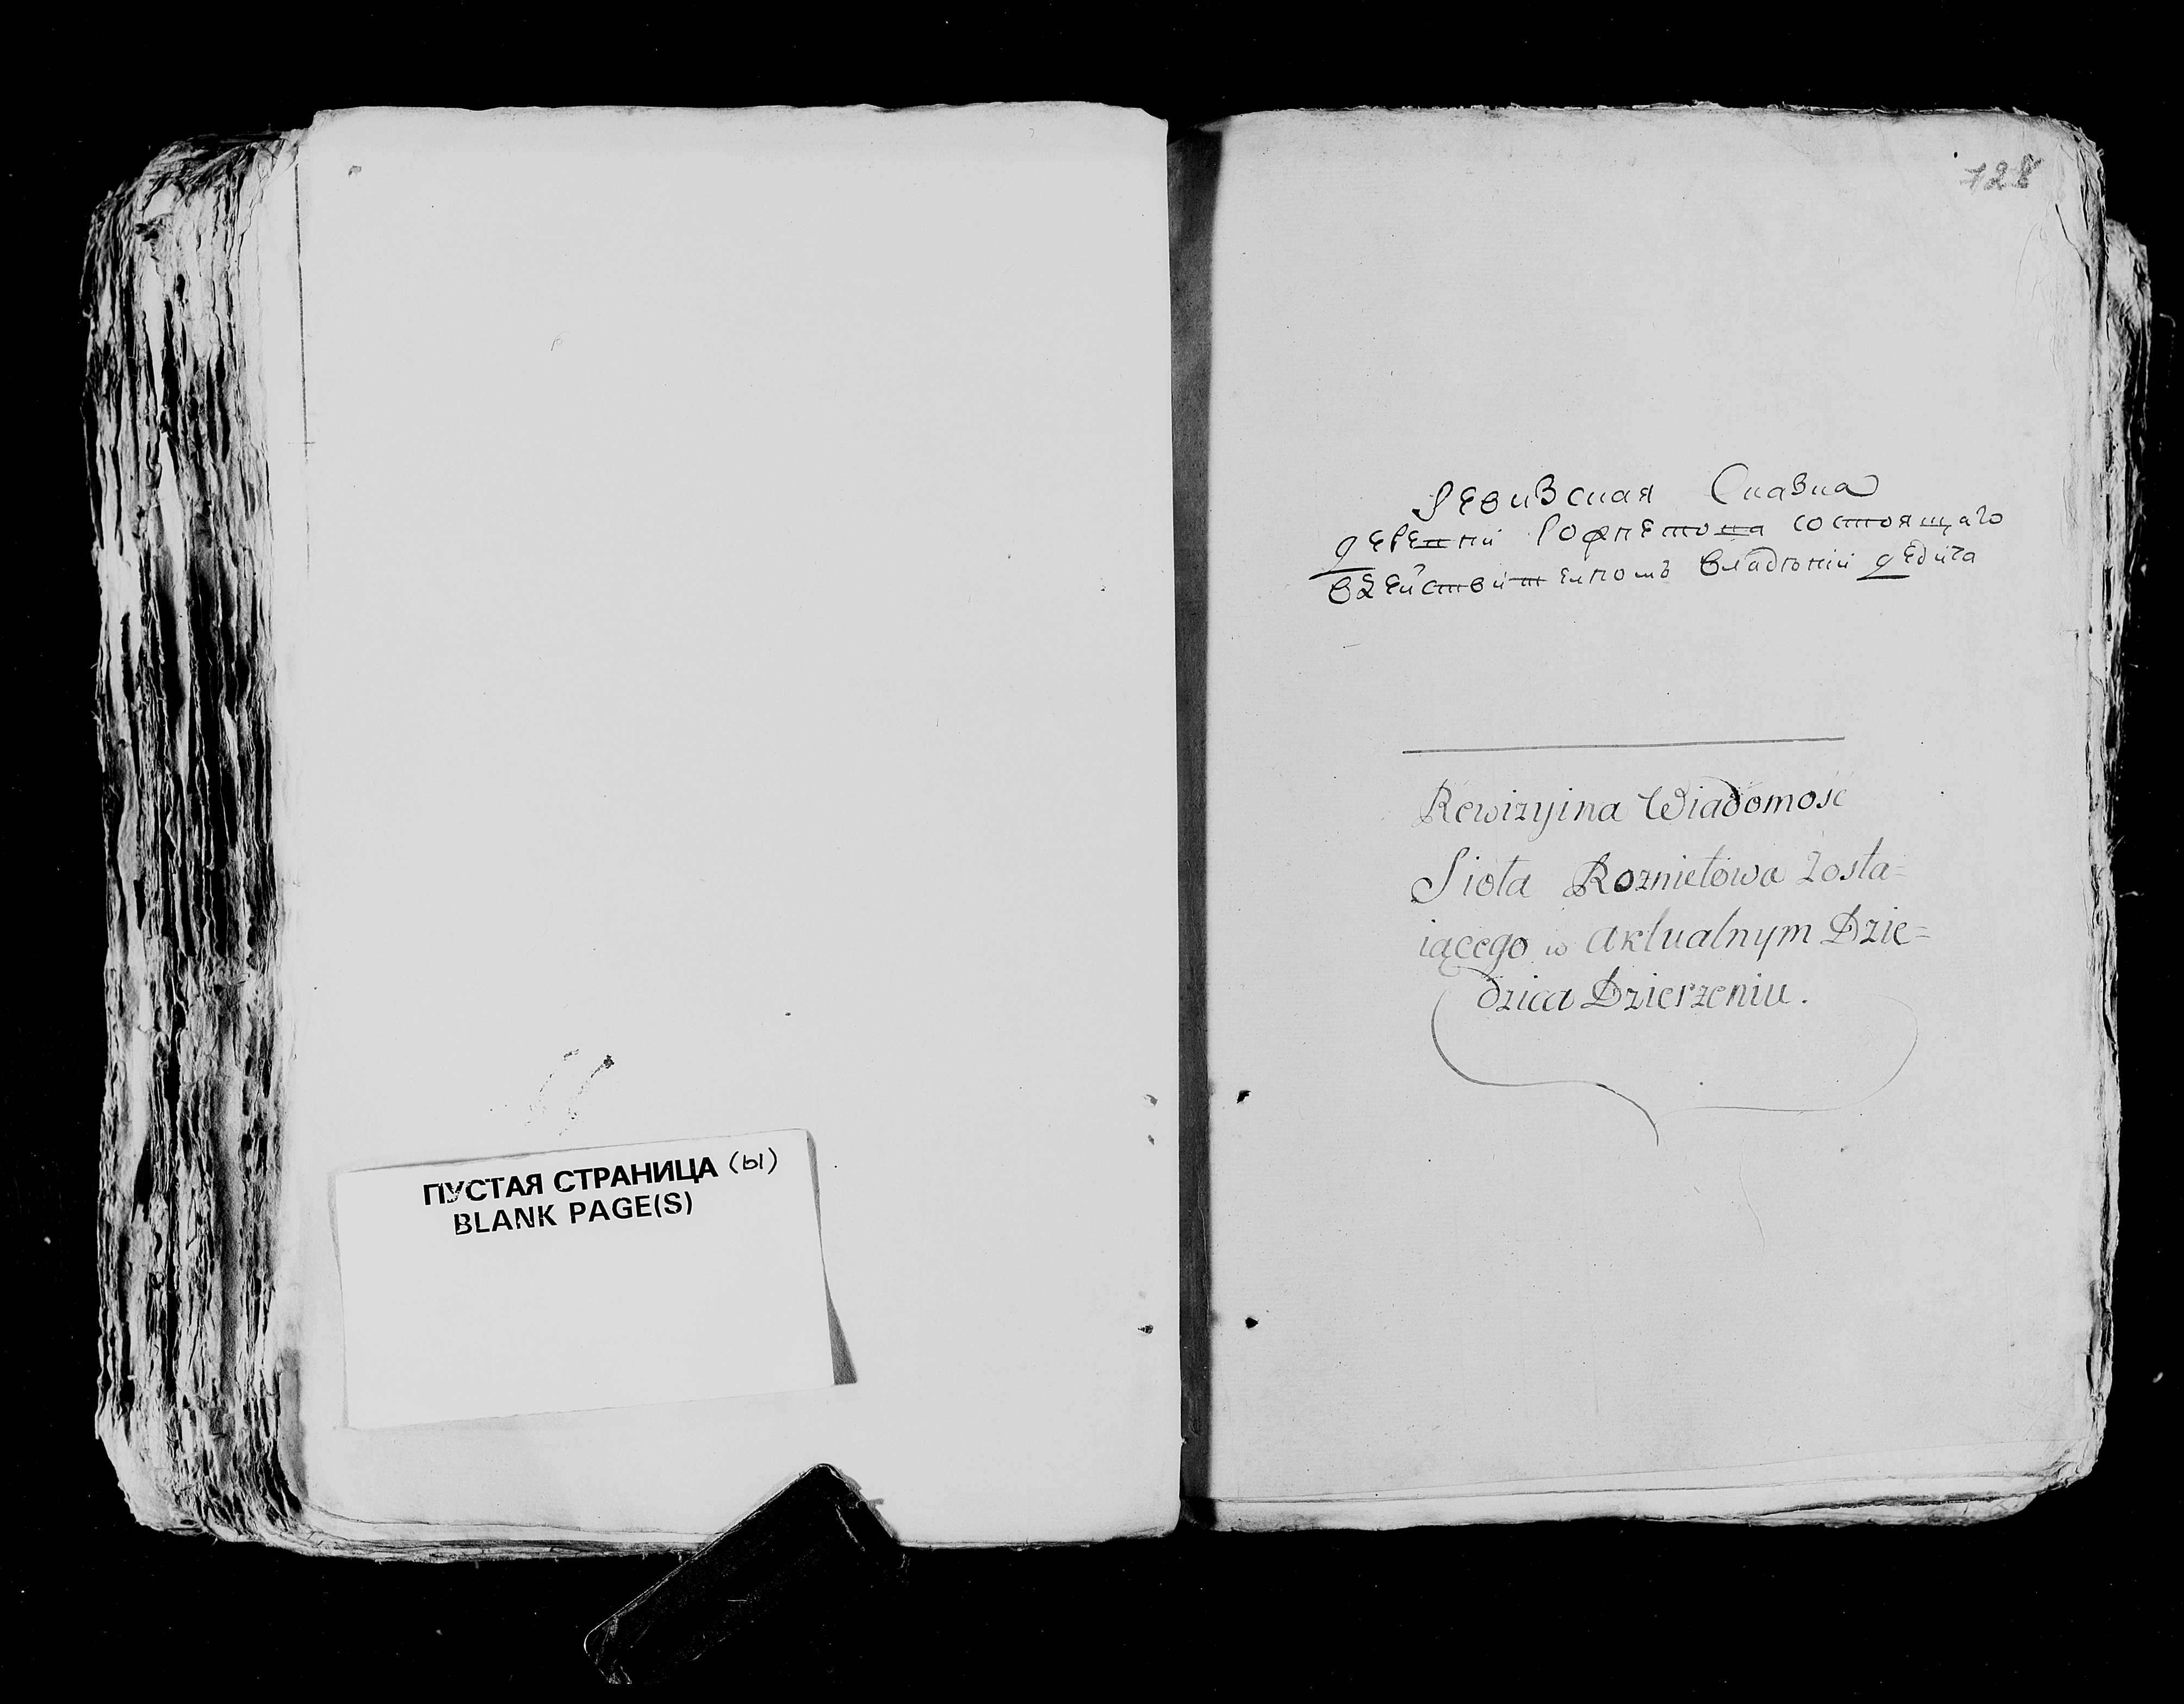 ПУСТАЯ СТРАНИЦА (ы)
BLANK PAGE(S)
128
Ревизская Сказка
деревни состоящаго
в действителномъ владѣнии дедича
Rewizyina Wiadomość
Sioła Roznietowa Zosta=
iącego w Aktualnym Dzie=
dzica Dzierzeniu.